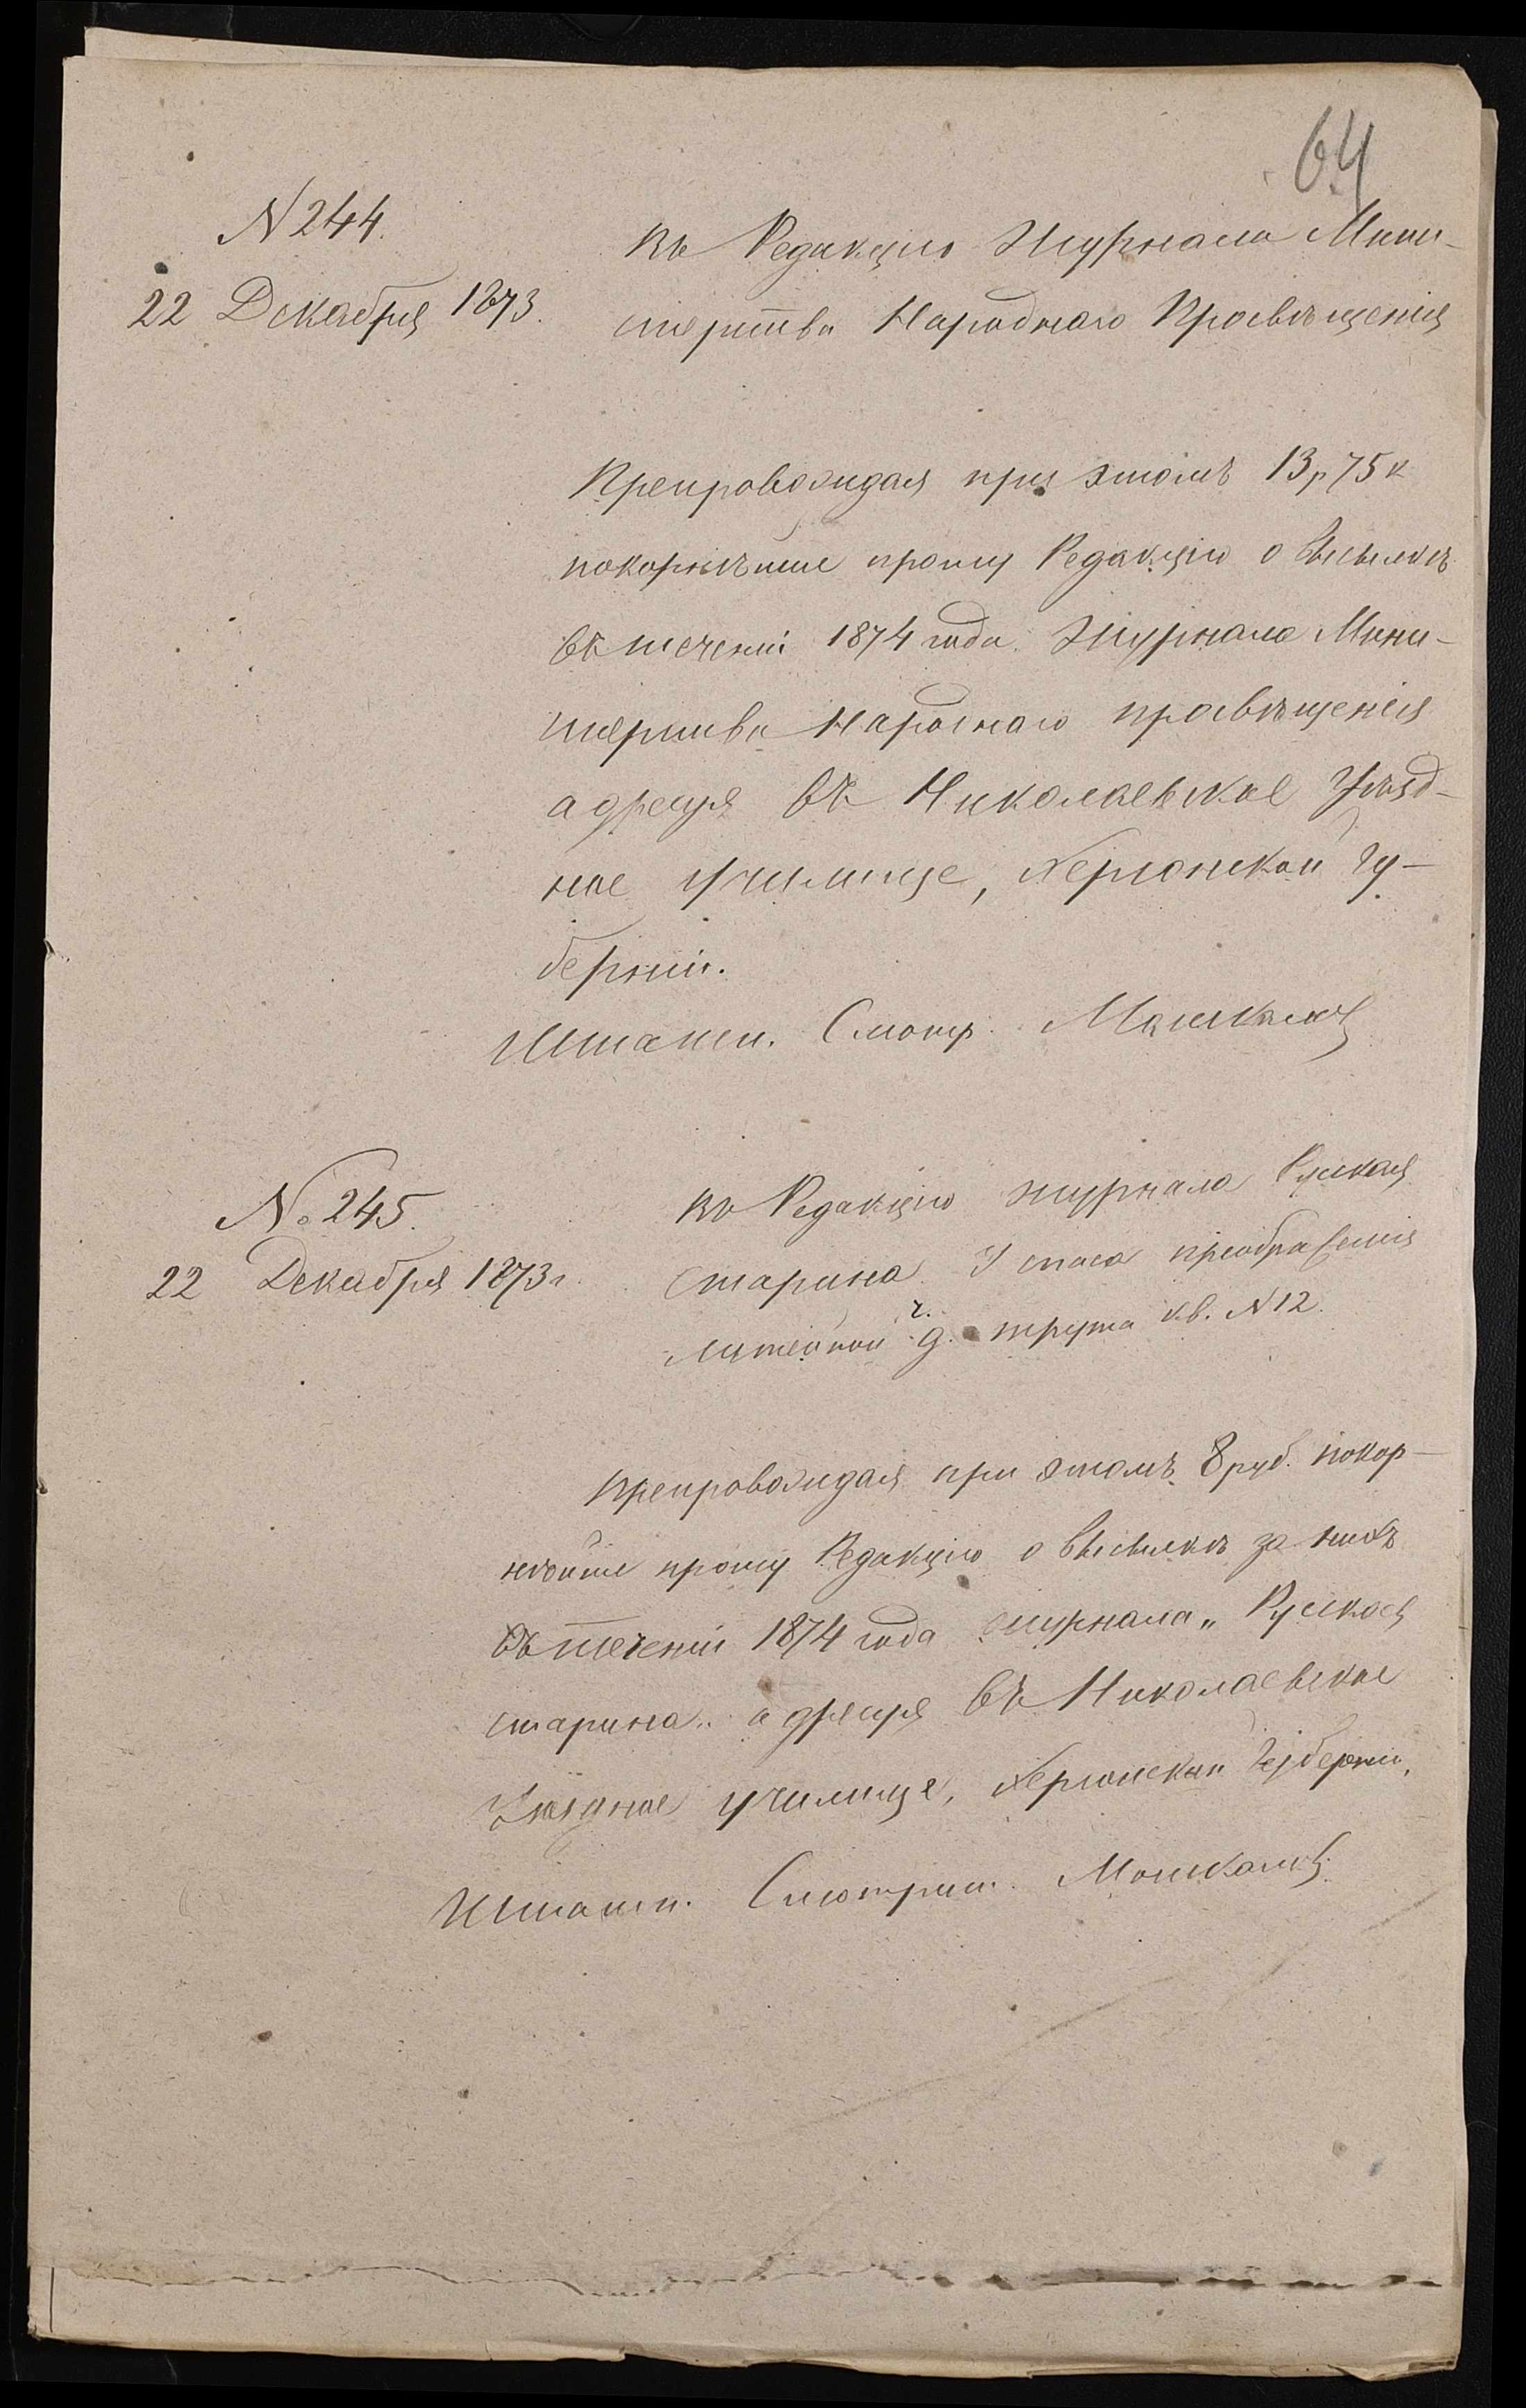 64
N 244.
22 Декабря 1873.
Въ Редакцію Журнала Мини-
стерства Народнаго Просвѣщенія
Препровождая при этомъ 13 р 75 к
покорнѣйше прошу Редакцію о высылкѣ
въ теченіи 1874 года Журнала Мини-
стерства Народнаго просвѣщенія
адресуя въ Николаевское Уѣзд-
ное училище, Херсонской Гу-
берніи.
Штатн. Смотр.
No 245.
22 Декабря 1873 г.
Въ Редакцію журнала Русская
Старина У спаса преображенія
Литейной ч. д. трута кв. N 12.
Препровождая при этомъ 8 руб. покор-
нѣйше прошу Редакцію о высылкѣ за нихъ
въ теченіи 1874 года журнала „Русская
старина„ адресуя въ Николаевское
Уѣздное училище, Херсонской Губерніи,
Штатн. Смотрит.